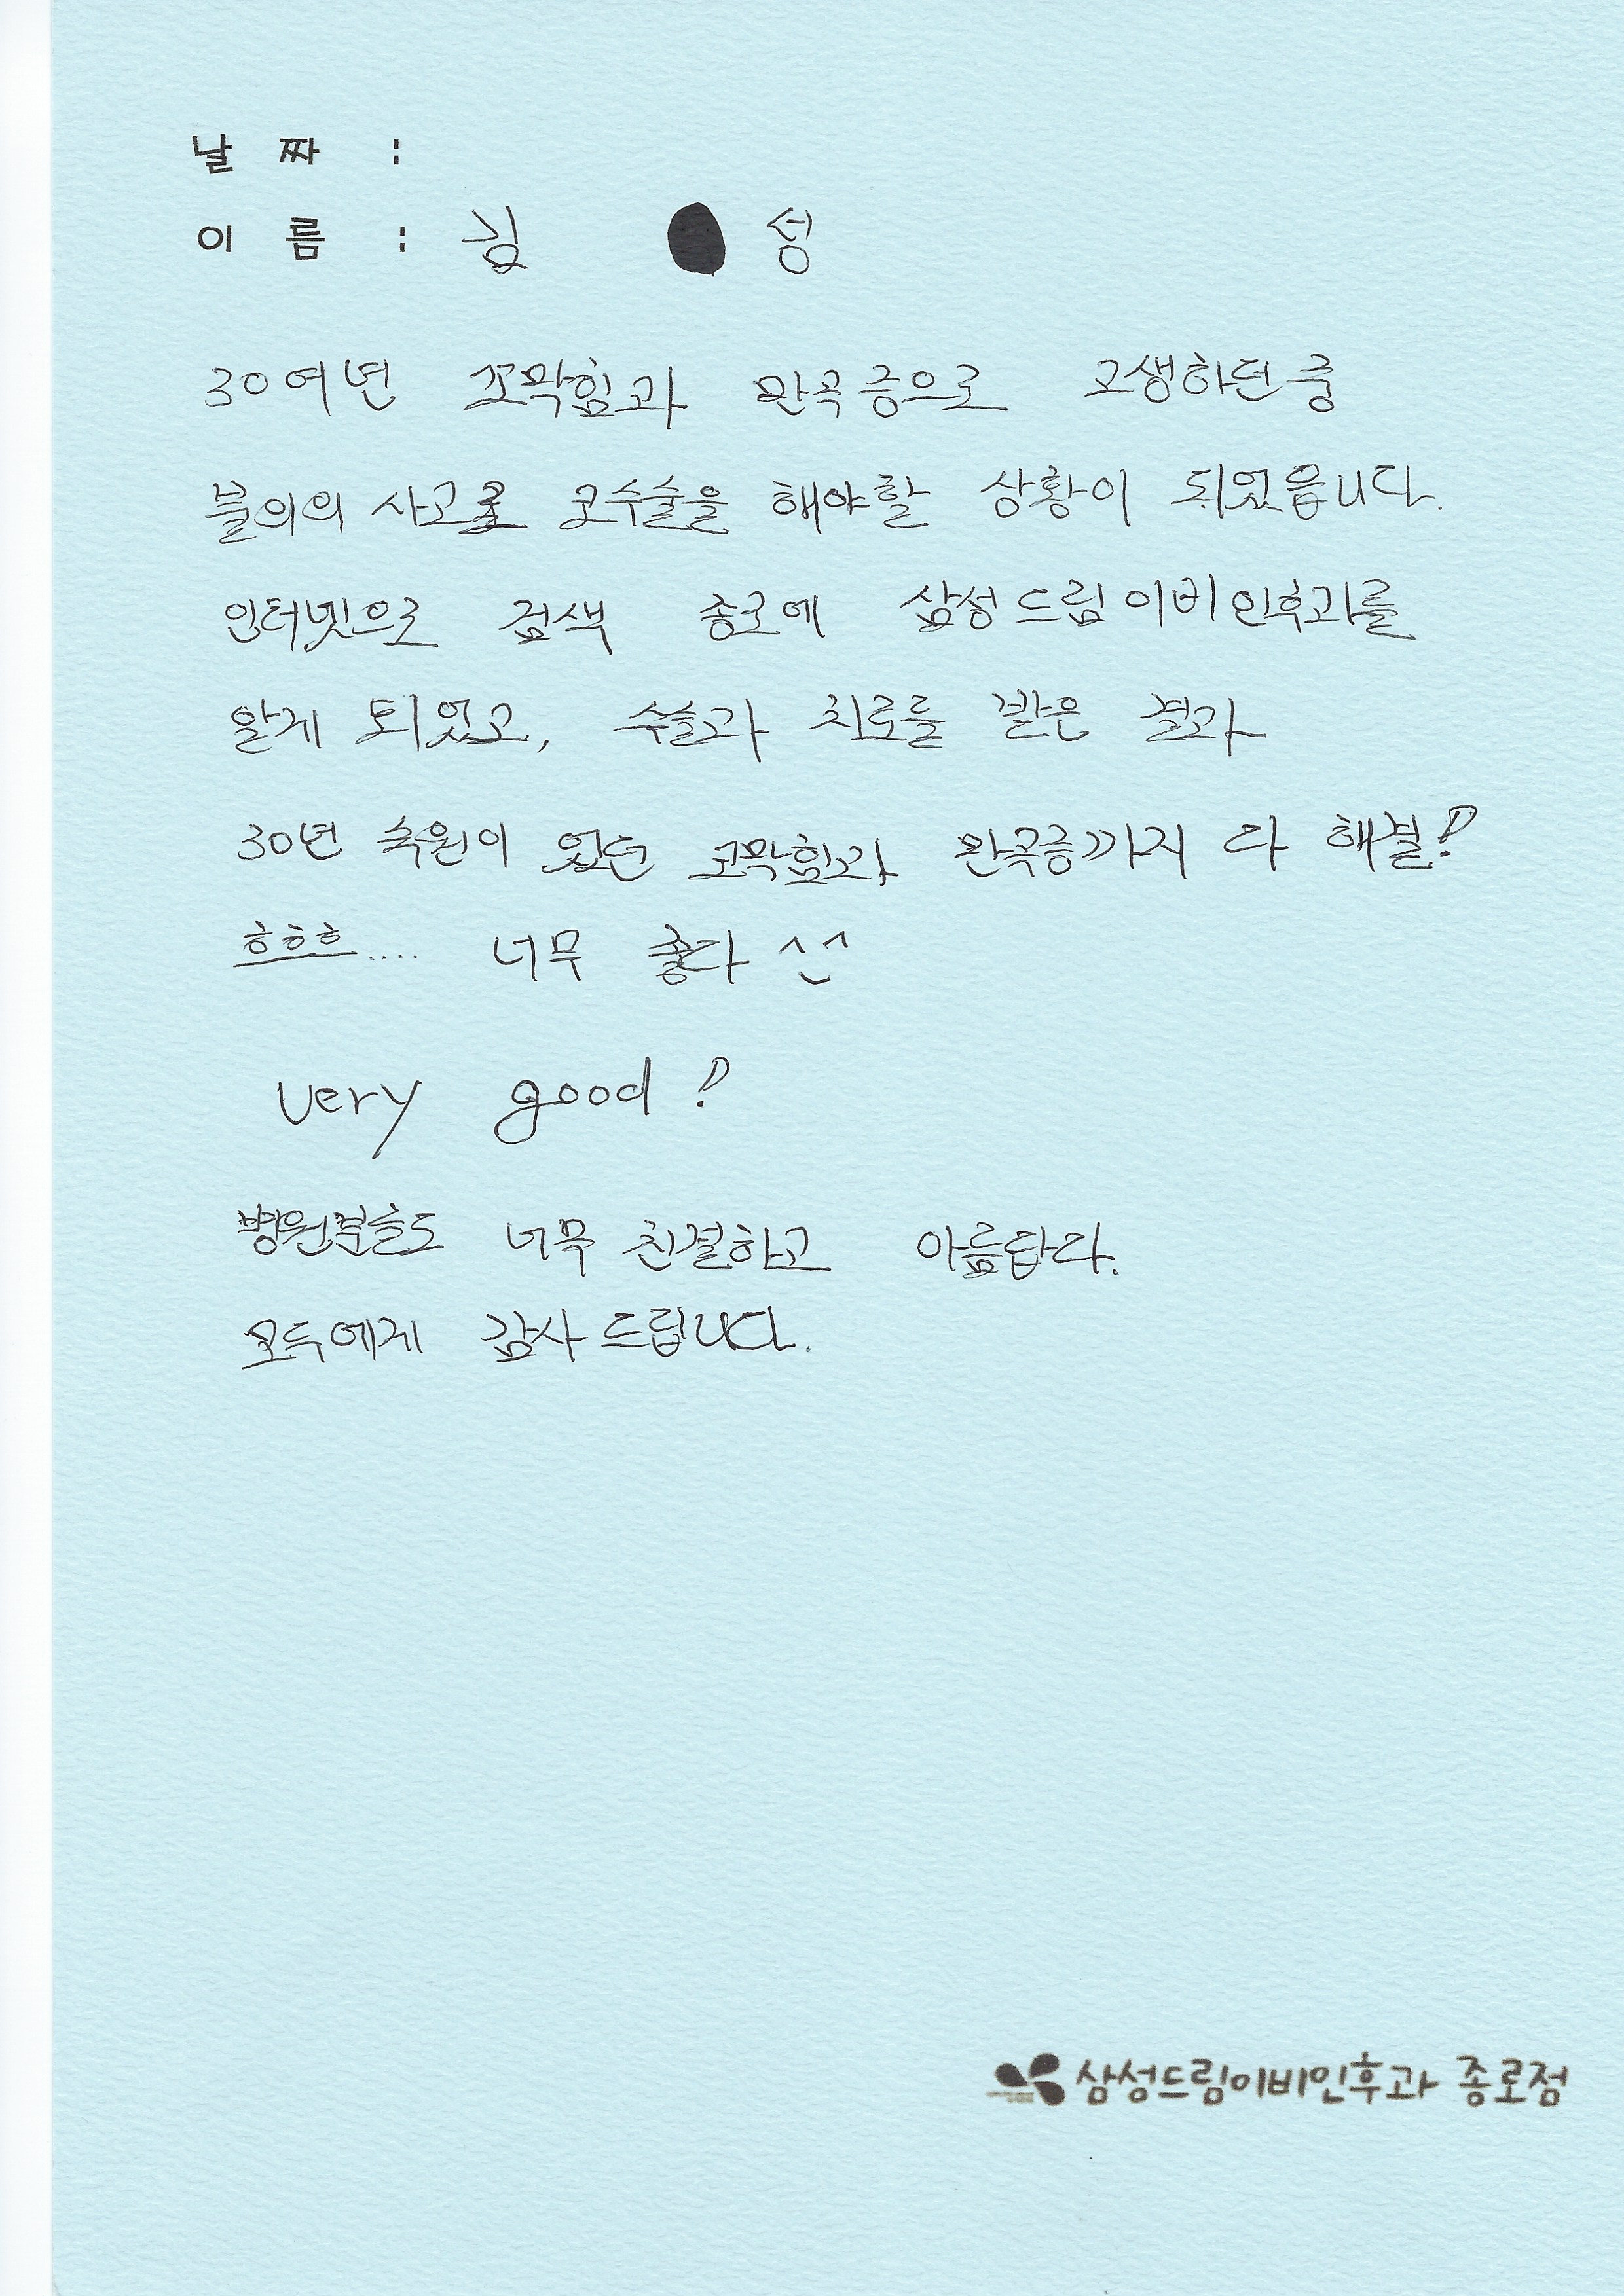 날 짜 :
이 름 : 김 성
30여년 코막힘과 만곡증으로 고생하던중
불의의 사고로 코수술을 해야할 상황이 되었읍니다.
인터넷으로 검색 종로에 삼성드림이비인후과를
알게 되었고, 수술과 치료를 받은 결과
30년 숙원이 었던 코막힘과 만곡증까지 다 해결!
흐흐흐.... 너무 좋다 ^_^
very good!
병원분들도 너무 친절하고 아름답다.
모두에게 감사드립니다.
삼성드림이비인후과 종로점